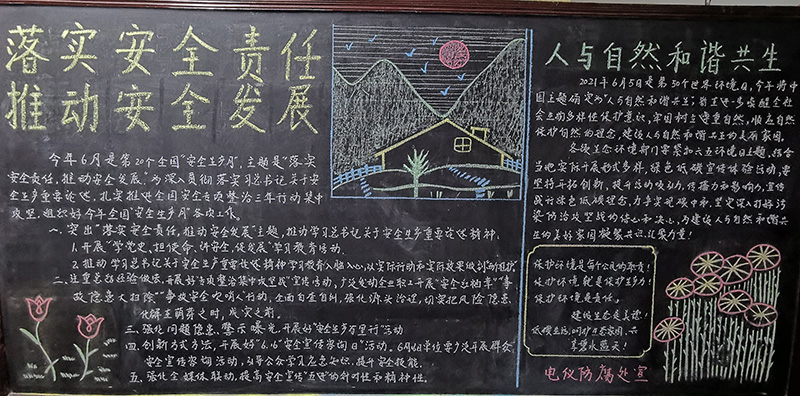 落实安全责任
推动安全发展
今年6月是第20个全国"安全生产月",主题是"落实
安全责任,推动安全发展",为深入贯彻落实习总书记关于安
全生产重要论述,扎实推进全国安全专项整治三年行动集中
攻坚,组织好今年全国"安全生产月"各项工作。
一、突出"落实安全责任,推动安全发展"主题,推动学习总书记关于安全生产重要论述精神。
1.开展"学党史、担使命、讲安全、促发展"学习教育活动.
2.推动学习总书记关于安全生产重要论述精神学习教育入脑入心,以实际行动和实际效果做到"两个维护"
二、注重总结经验做法,开展好专项整治集中攻坚战"宣传活动,广泛发动企业职工开展"安全公开课""事
故隐患大扫除""争做安全吹哨人"行动,全面自查自纠,强化源头治理,切实把风险隐患
化解在萌芽之时,成灾之前。
三、强化问题隐患、警示曝光,开展好"安全生产万里行"活动
四、创新方式方法,开展好"6.16"安全宣传咨询日"活动。6月16日单位要广泛开展群众
安全宣传咨询活动,引导公众学习应急知识,提升安全技能.
五、强化全媒体联动,提高安全宣传"五进"的针对性和精准性。
人与自然和谐共生
2021年6月5日是第50个世界环境日,今年将中
国主题确定为"人与自然和谐共生",旨在进一步唤醒全社
会生物多样性保护意识,牢固树立尊重自然、顺应自然
保护自然的理念,建设人与自然和谐共生的美丽家园。
各级生态环境部门要紧扣六五环境日主题,结合
当地实际开展形式多样、绿色低碳宣传体验活动,要
坚持开拓创新,提升活动吸引力、传播力和影响力,宣传
践行绿色低碳理念,为
保护环境是每个公民的职责!
保护环境就是保护生产力!
保护环境是责任。
爱护生态是美德!
低碳生活,呵护生态家园,共
享碧水蓝天!
电仪防腐处宣